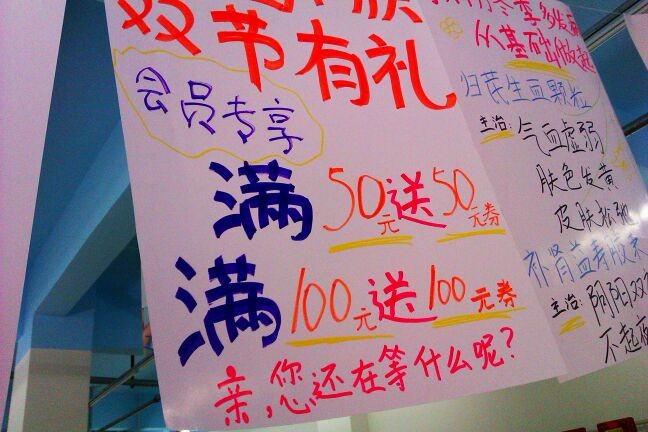 双节有礼
会员专享
满50元送50元券
满100元送100元券
亲,您还在等什么呢?
从基础做起
归芪生血颗粒
主治:气血虚弱
肤色发黄
皮肤松弛
补肾益寿胶囊
主治:阴阳双
不起夜